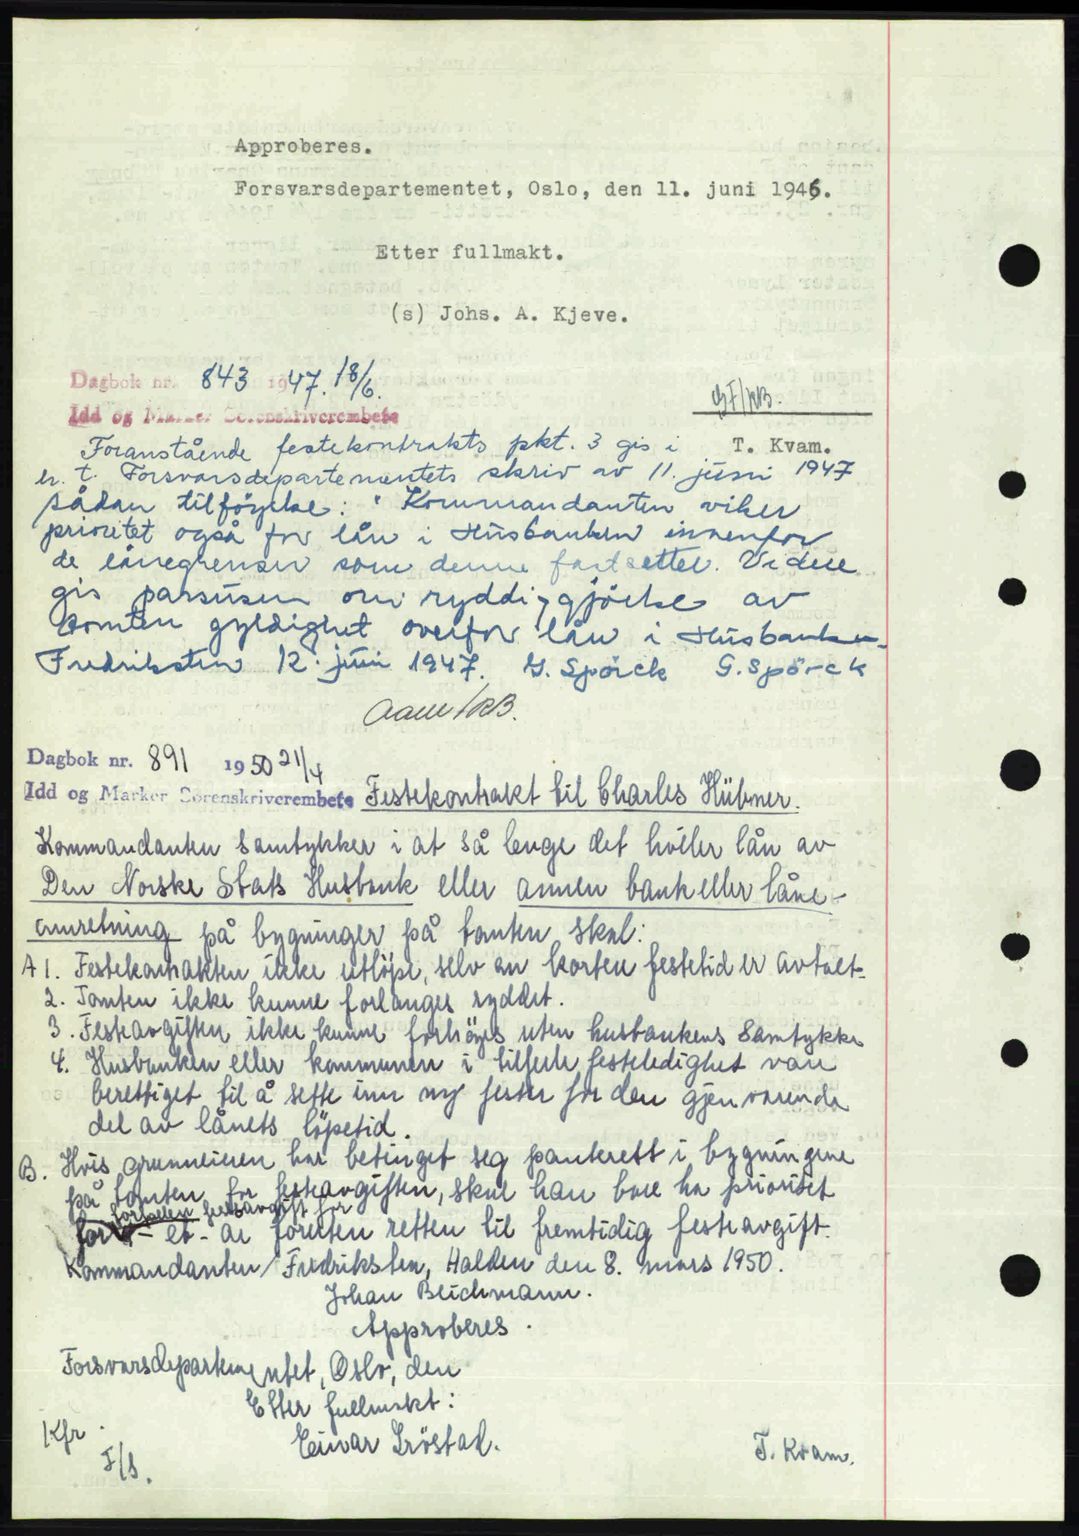 Approberes.
Forsvarsdepartementet, Oslo, den 11. juni 1946.
Etter fullmakt.
(s) Johs. A. Kjeve.
Dagbok nr. 843 1947. 18/6.
Idd og Marker Sorenskriverembete
GF/KB.
T. Kvam.
Foranstående festekontrakts pkt. 3 gis i
h. t. Forsvarsdepartementets skriv av 11. juni 1947
sådan tilföyelse: "Kommandanten viker
prioritet også for lån i Husbanken innenfor
de lånegrenser som denne fastsetter. Videre
gis passusen om ryddiggjörelse av
tomten gyldighet overfor lån i Husbanken.
Fredriksten 12. juni 1947. G. Spörck G. Spörck
Dagbok nr. 891 1950 21/4
Idd og Marker Sorenskriverembete Festekontrakt til Charles Hübner.
Kommandanten samtykker i at så lenge det hviler lån av
Den Norske Stats Husbank eller annen bank eller låne-
innretning på bygninger på tomten skal:
A 1. Festekontrakten ikke utlöpe, selv om korten festetid er avtalt.
2. Tomten ikke kunne forlanges ryddet.
3. Festeavgiften ikke kunne forhöyes uten husbankens samtykke
4. Husbanken eller kommunen i tilfelle festeledighet være
berettiget til å sette inn ny fester for den gjenværende
del av lånets löpetid.
B. Hvis grunneieren har betinget seg panterett i bygningene
på tomten for festeavgiften, skal han bare ha prioritet
forfalen festeavgift for
for - et - år foruten retten til fremtidig festeavgift.
Kommandanten/Fredriksten, Halden den 8. mars 1950.
Johan Beichmann.
Approberes.
Forsvarsdepartementet, Oslo, den
Etter fullmakt:
Einar Gröstad.
Kfr.
F/S.
T. Kvam.